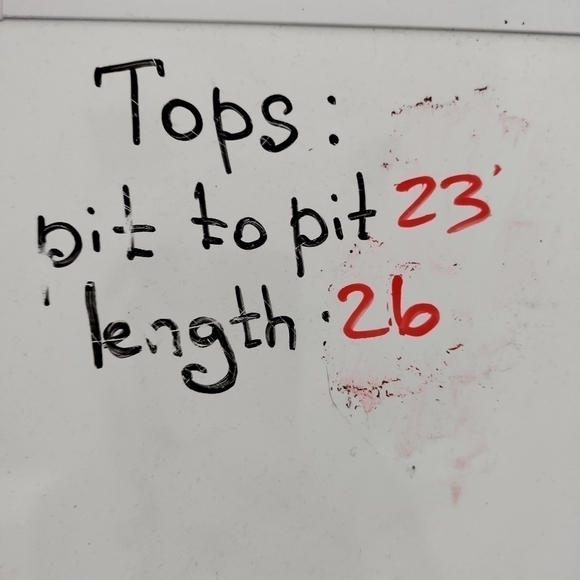 Tops:
pit to pit 23'
length: 26